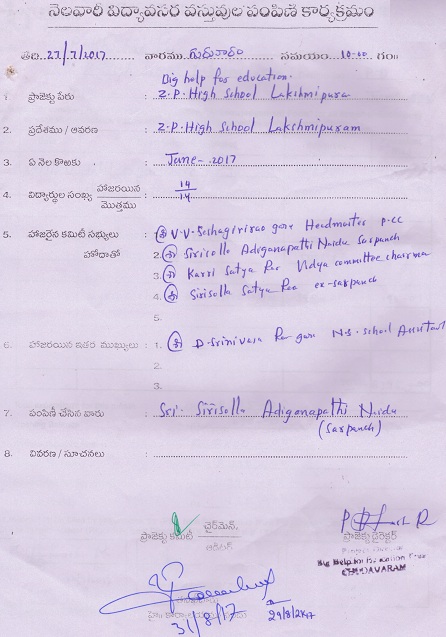 నెలవారీ విద్యావసర వస్తువుల పంపిణీ కార్యక్రమం
తేది 27/7/2017 వారము గురువారం సమయం 10-00 గం॥
Big help for education.
1. ప్రాజెక్టు పేరు : Z.P. High School Lakshmipura
2. ప్రదేశము / ఆవరణ : Z.P. High School Lakshmipuram
3. ఏ నెల కొఱకు : June-2017
4. విద్యార్థుల సంఖ్య హాజరయిన / మొత్తము : 14/14
5. హాజరైన కమిటీ సభ్యులు హోదాతో : 1. శ్రీ V.V. Seshagirirao garu Headmaster
2. శ్రీ Sirisolla Adiganapathi Naidu Sarpanch
3. శ్రీ Karri Satya Rao Vidya committee chairman
4. శ్రీ Sirisolla Satya Rao ex-sarpanch
5.
6. హాజరయిన ఇతర ముఖ్యులు : 1. శ్రీ D. Srinivasa Rao garu school
2.
3.
7. పంపిణీ చేసిన వారు : Sri. Sirisolla Adiganapathi Naidu
(Sarpanch)
8. వివరణ / సూచనలు :
ప్రాజెక్టు కమిటీ ఛైర్మెన్,
ఆడిటర్
ప్రాజెక్టు డైరెక్టర్
Project Director
Big Help for Education
CHODAVARAM
31/8/17
29/8/2017